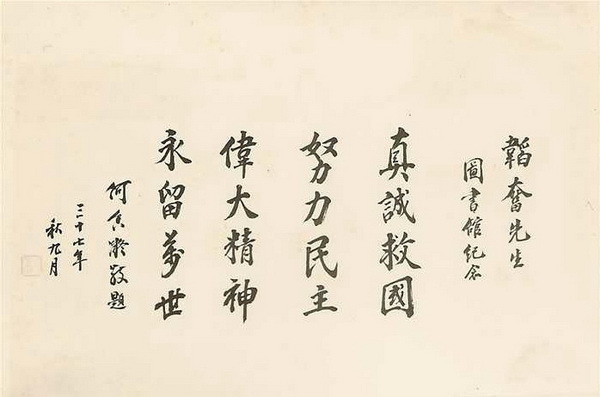 韜奮先生
圖書館紀念
真誠救國
努力民主
偉大精神
永留萬世
何香凝敬題
三十七年
秋九月